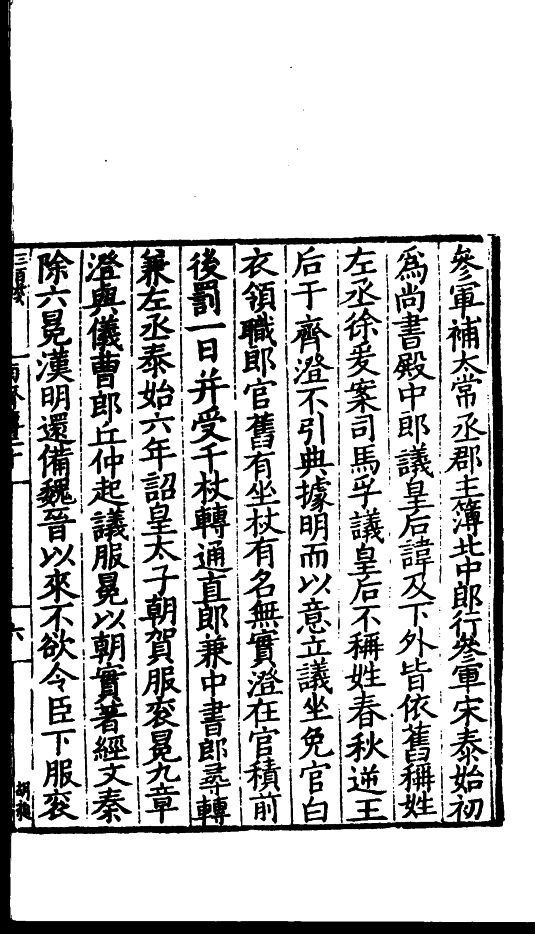 參軍補太常丞郡主簿北中郎行參軍宋泰始初
爲尚書殿中郎議皇后諱及下外皆依舊稱姓
左丞徐爰案司馬孚議皇后不稱姓春秋逆王
后于齊澄不引典據明而以意立議坐免官白
衣領職郎官舊有坐杖有名無實澄在官積前
後罰一日并受千杖轉通直郎兼中書郎尋轉
兼左丞泰始六年詔皇太子朝賀服衮冕九章
澄與儀曹郎丘仲起議服冕以朝實著經文秦
除六冕漢明還備魏晉以來不欲令臣下服衮
六